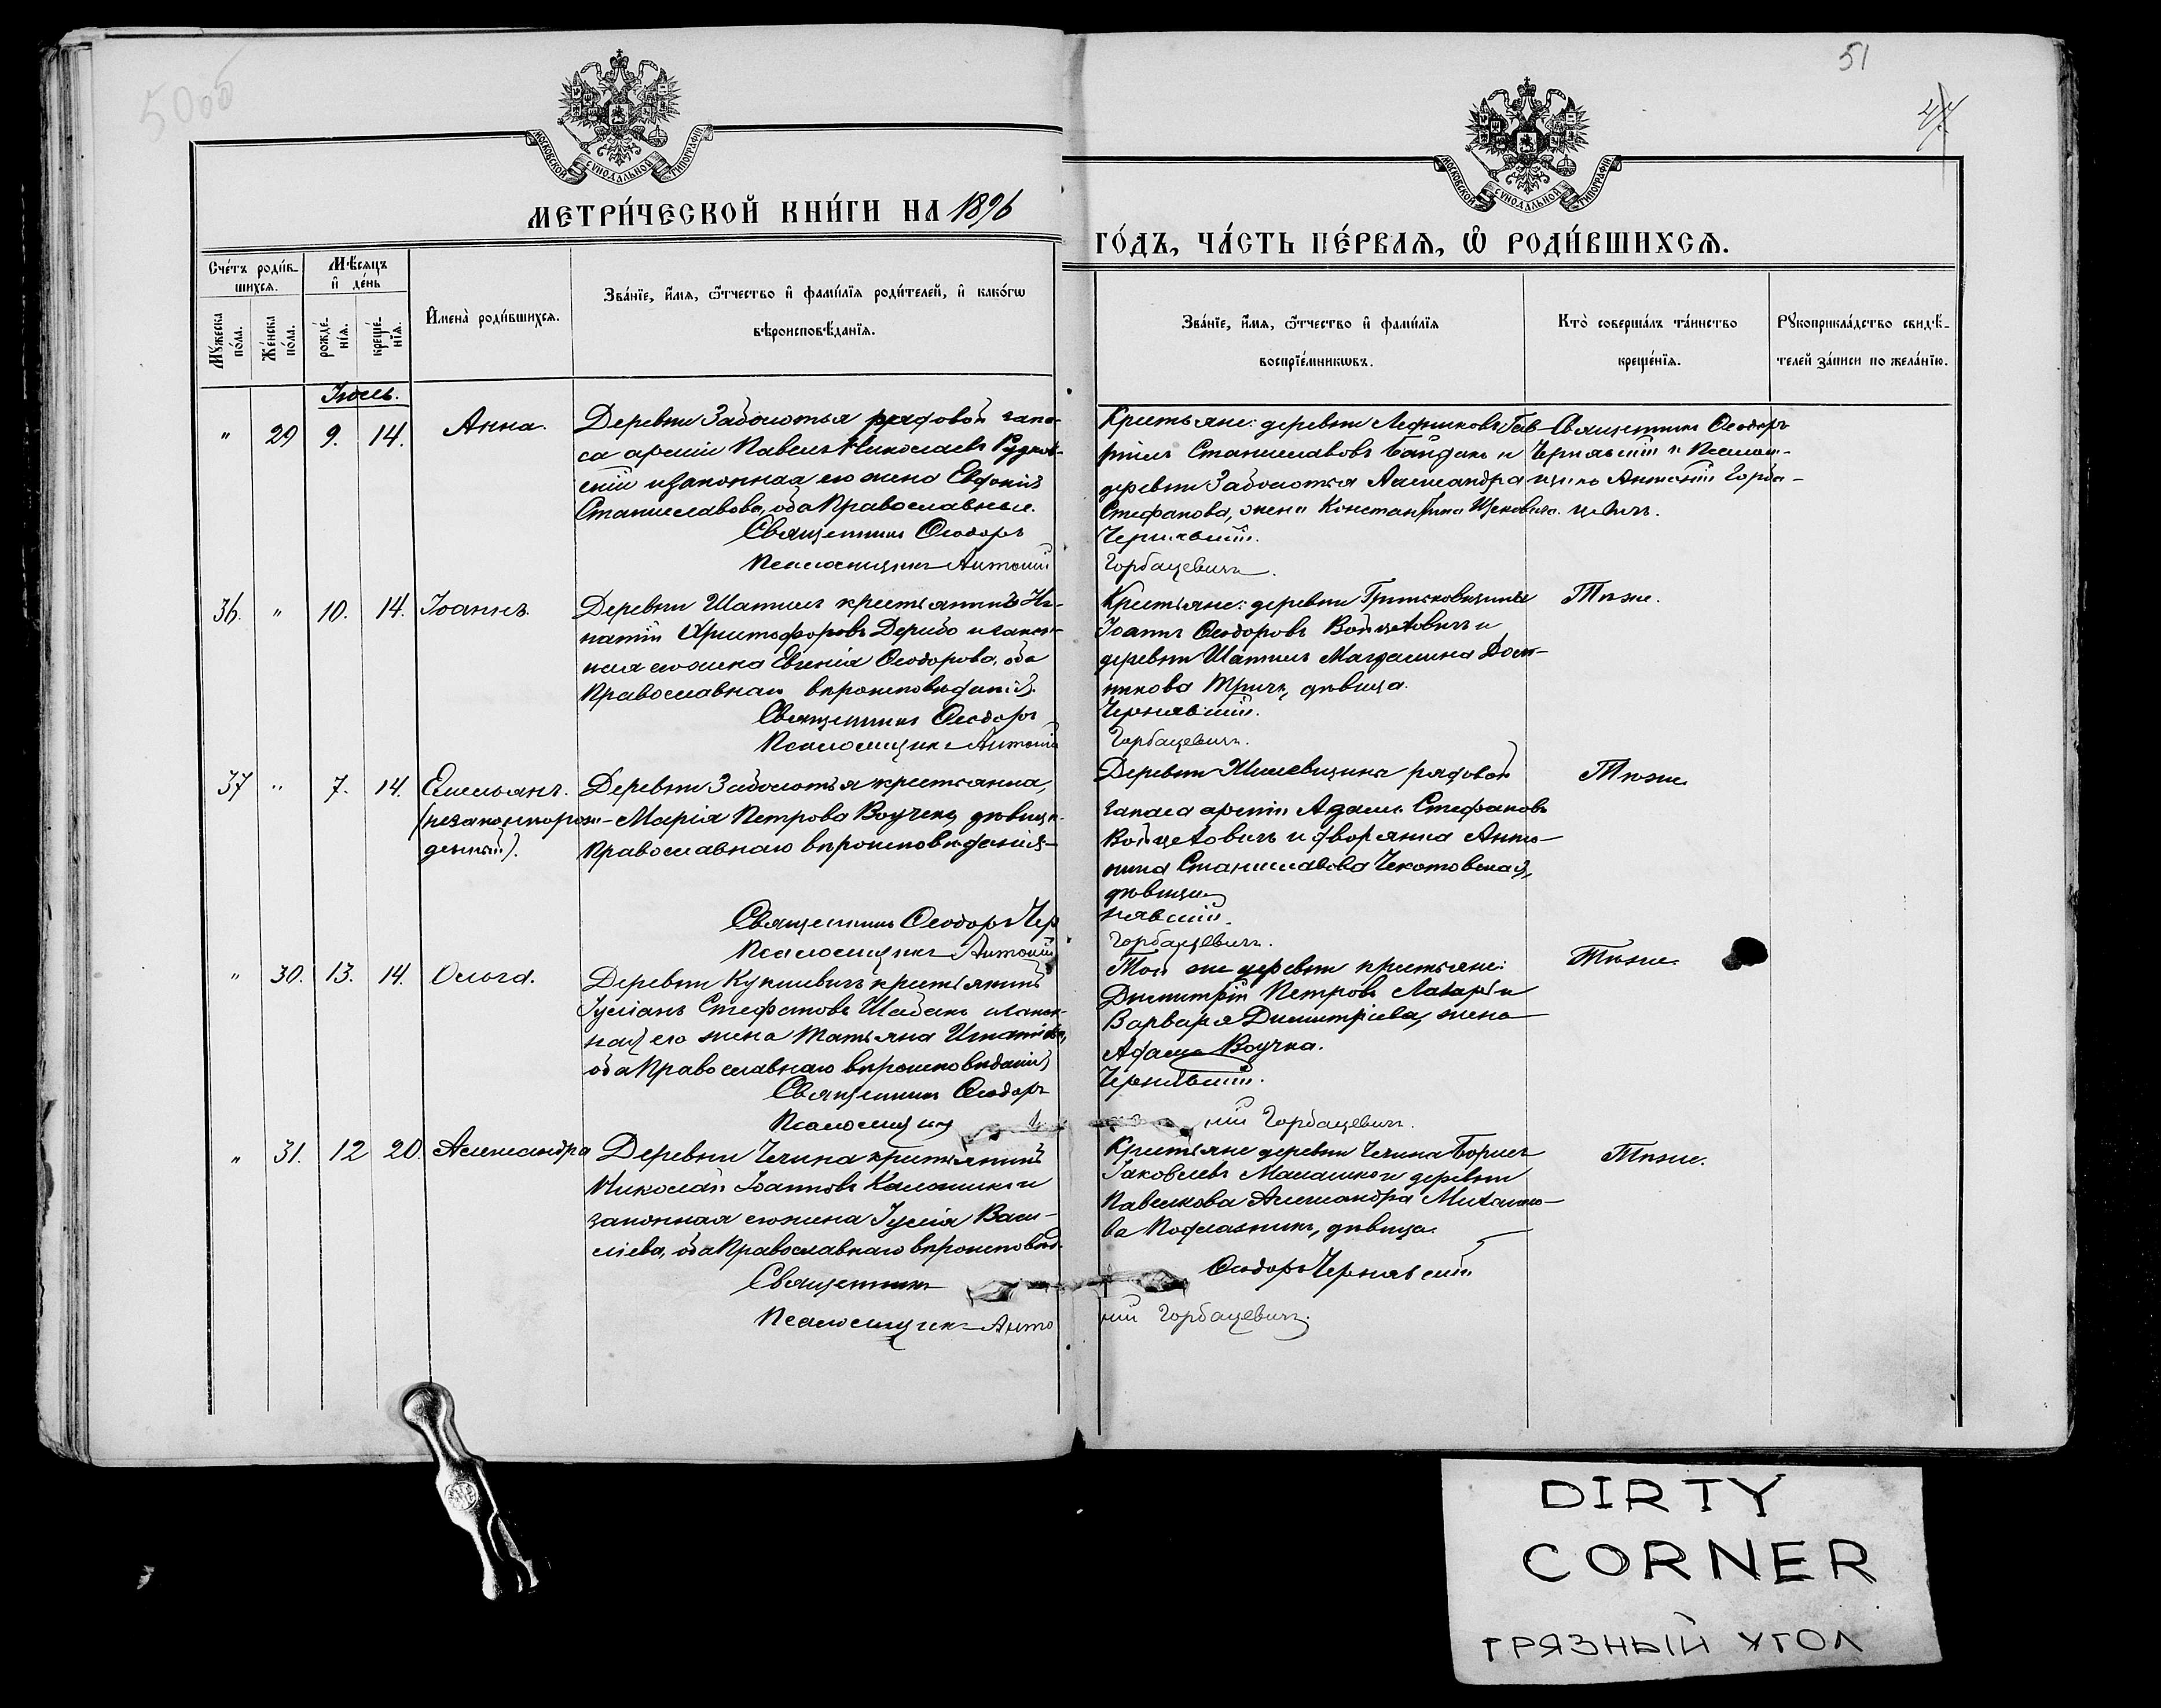 51
МОСКОВСКОЙ СУНОДАЛЬНОЙ ТИПОГРАФІИ
МОСКОВСКОЙ СУНОДАЛЬНОЙ ТИПОГРАФІИ
МЕТРИ́ЧЕСКОЙ КНИ́ГИ НА 1896
ГО́ДЪ, ЧА́СТЬ ПЕ́РВАѦ, Ѡ РОДИ́ВШИХСѦ.
Сче́тъ роди́в-
шихсѧ.
Мꙋ́жеска
по́ла.
Же́нска
по́ла.
Мѣ́сѧцъ
и҆ де́нь
рожде́-
нїѧ.
креще́-
нїѧ.
И҆мена̀ роди́вшихсѧ.
Зва́нїе, и҆́мѧ, ѻ҆́тчество и҆ фами́лїѧ роди́телей, и҆ како́гѡ
вѣроисповѣ́данїѧ.
Зва́нїе, и҆́мѧ, ѻ҆́тчество и҆ фами́лїѧ
воспрїе́мникѡвъ.
Кто̀ соверша́лъ та́инство
креще́нїѧ.
Рꙋкоприкла́дство свидѣ́-
телей за́писи по жела́нїю.
Іюль.
" 29 9. 14. Анна.
Деревни Заболотья рядовой запа-
са арміи Павелъ Николаевъ Рудков-
скій и законная его жена Евдокія
Станиславова, оба Православные.
Священникъ Ѳеодоръ
Псаломщикъ Антоній
Крестьяне: деревни Гав-
ріилъ Станиславовъ и
деревни Заболотья Александра
Стефанова, жена Константина
Чернявскій.
Горбацевичъ.
Священникъ Ѳеодоръ
Чернявскій и Псалом-
щикъ Антоній Горба-
цевичъ.
36. " 10. 14. Іоаннъ.
Деревни Шатилъ крестьянинъ Иг-
натій Христофоровъ и закон-
ная его жена Евгенія Ѳеодорова, оба
Православнаго вѣроисповѣданія.
Священникъ Ѳеодоръ
Псаломщикъ Антоній
Крестьяне: деревни Гритьковщины
Іоаннъ Ѳеодоровъ Войцеховичъ и
деревни Шатилъ Магдалина Доми-
никова дѣвица.
Чернявскій.
Горбацевичъ.
Тѣже.
37 " 7. 14. Емельянъ.
(незаконнорож-
денный).
Деревни Заболотья крестьянка,
Марія Петрова дѣвица,
Православнаго вѣроисповѣданія
Священникъ Ѳеодоръ Чер
Псаломщикъ Антоній
Деревни рядовой
запаса арміи Адамъ Стефановъ
Войцеховичъ и дворянка Анто-
нина Станиславова
дѣвица
нявскій.
Горбацевичъ.
Тѣже.
" 30. 13. 14. Ольга.
Деревни крестьянинъ
Іуліанъ Стефановъ и закон-
ная его жена Татьяна Игнатіева,
оба Православнаго вѣроисповѣданія
Священникъ Ѳеодоръ
Псаломщикъ
Той же деревни крестьяне:
Димитрій Петровъ и
Варвара Димитріева, жена
Адама
Чернявскій.
ній Горбацевичъ.
Тѣже.
" 31. 12 20. Александра
Деревни Чечина крестьянинъ
Николай Іоанновъ и
законная его жена Іулія Васи-
ліева, оба Православнаго вѣроисповѣд.
Священникъ
Псаломщикъ Анто
Крестьяне деревни Чечина Борисъ
Іаковлевъ и деревни
Павелкова Александра Михаило-
ва дѣвица.
Ѳеодоръ Чернявскій
ній Горбацевичъ.
Тѣже.
DIRTY
CORNER
ГРЯЗНЫЙ УГОЛ